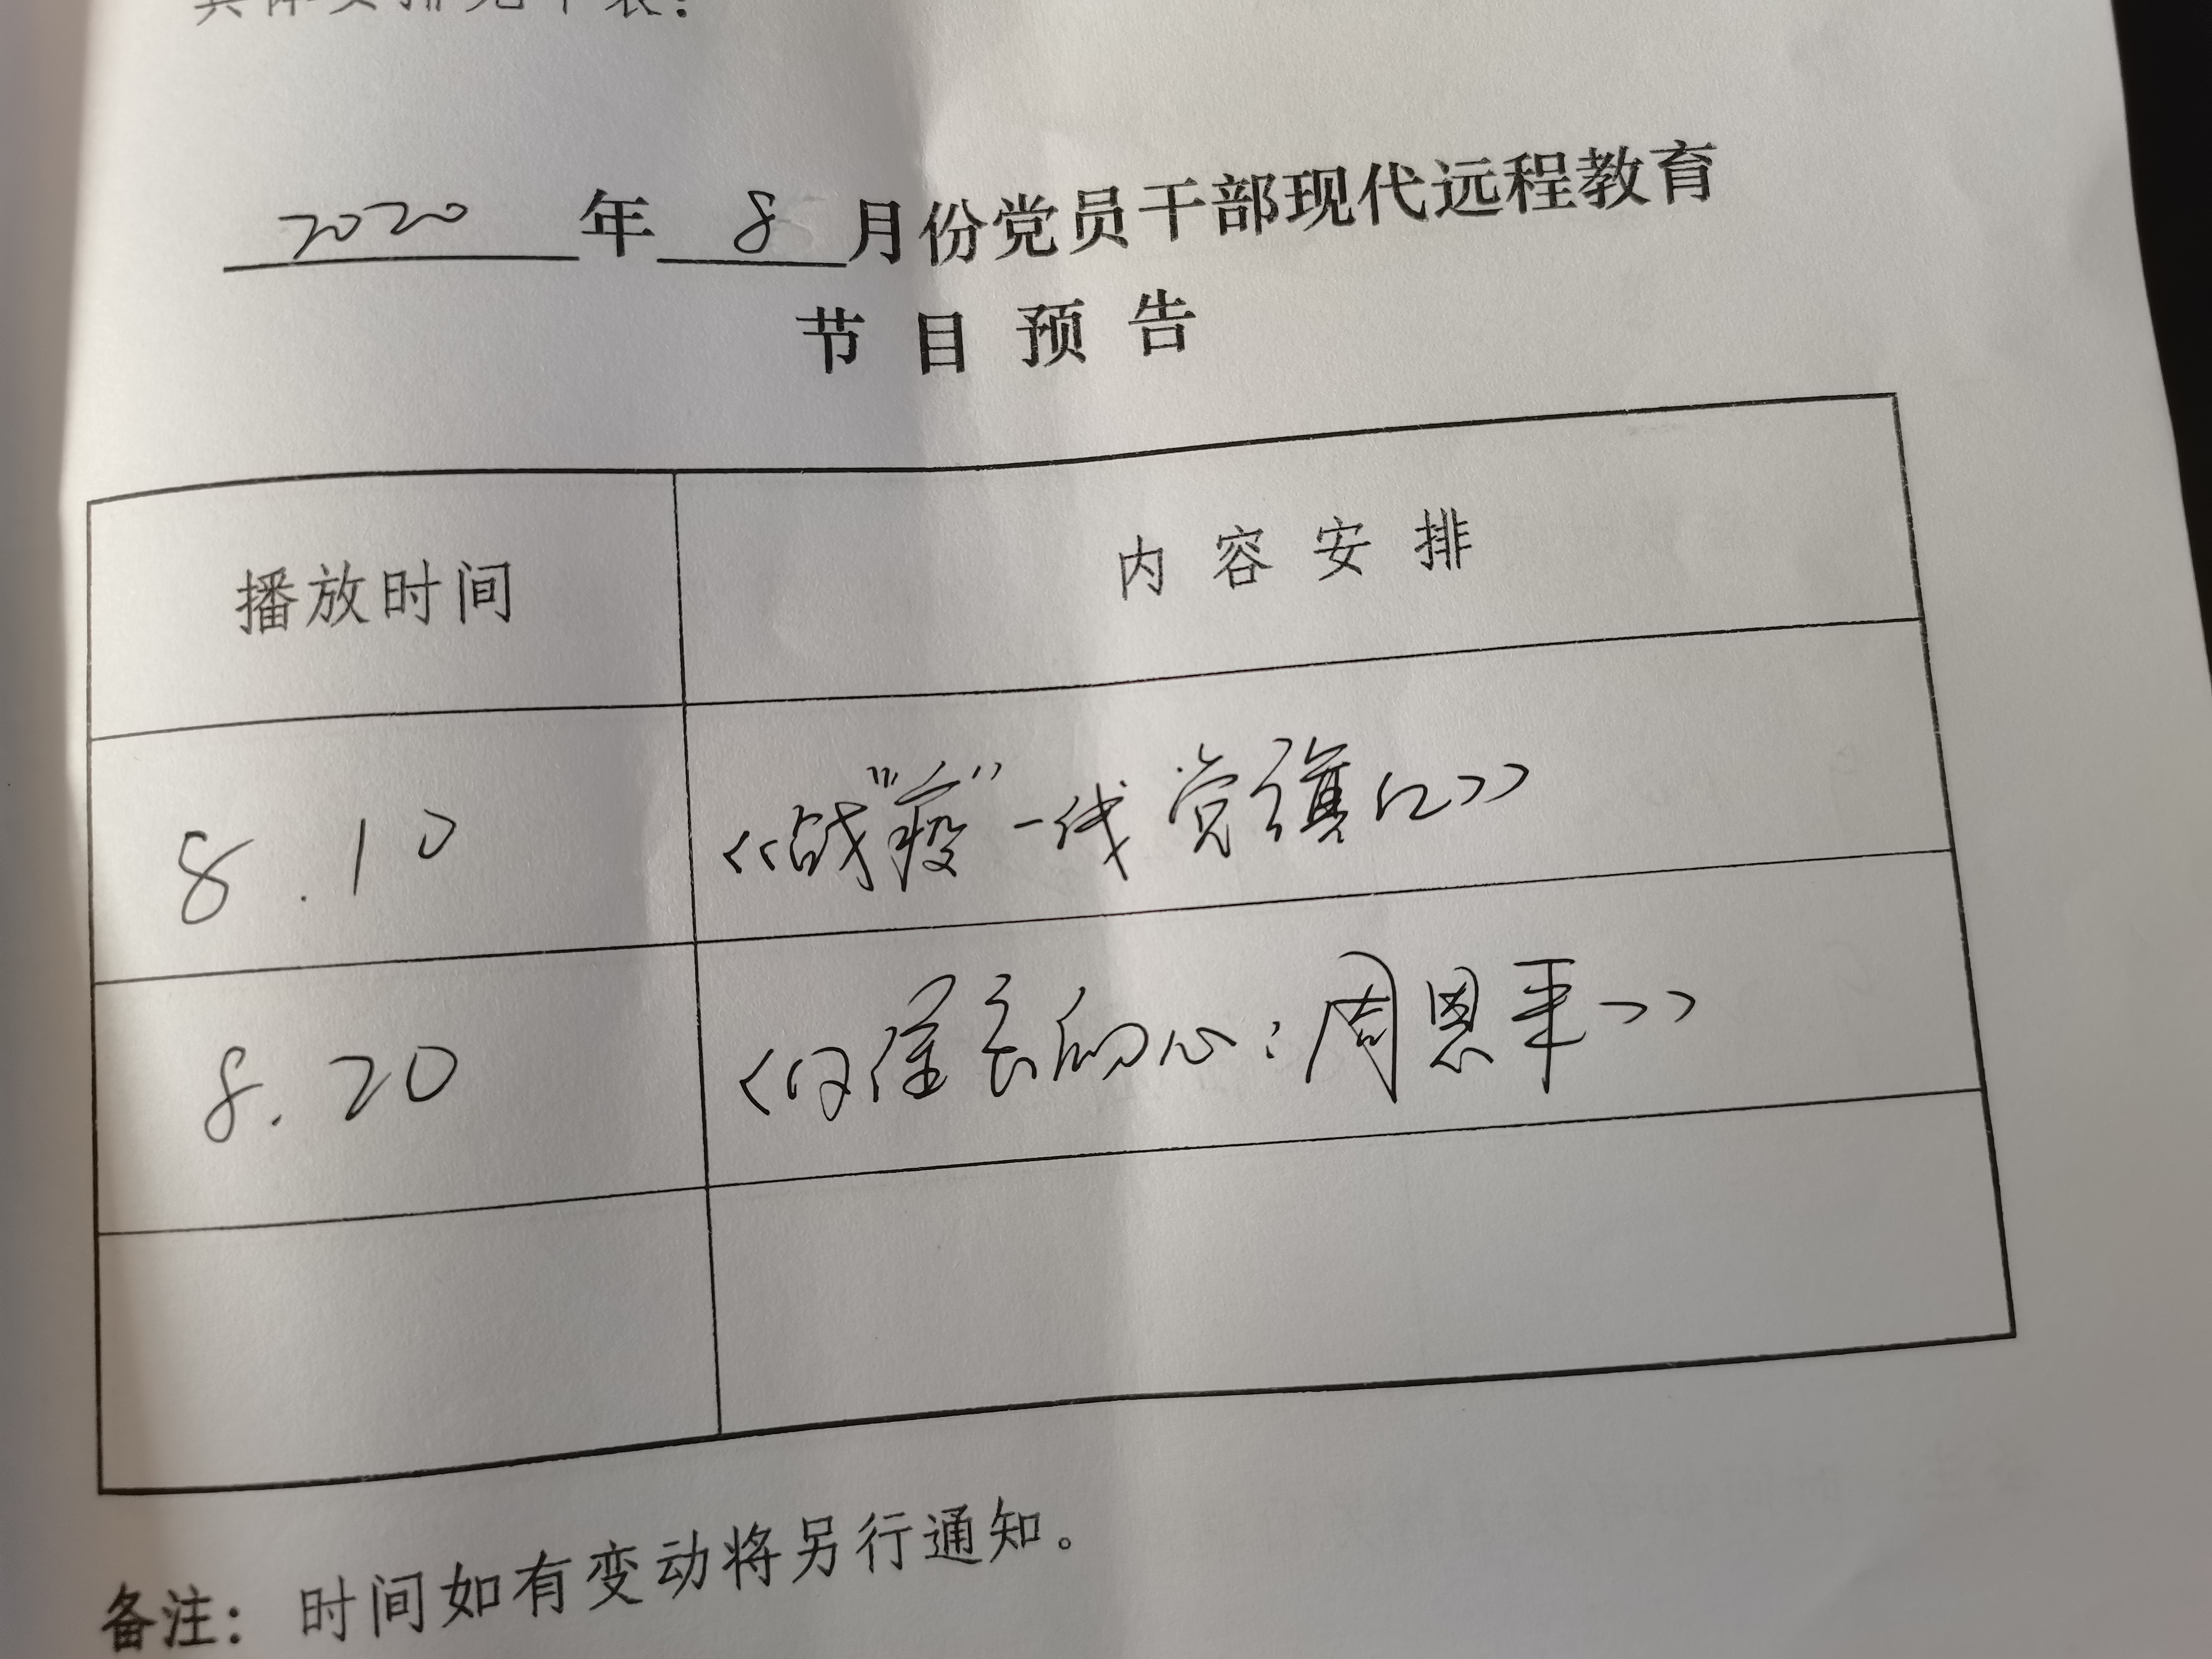 具体安排见下表：
2020 年 8 月份党员干部现代远程教育
节目预告
播放时间 内容安排
8.10 《战"疫"一线党旗红》
8.20 的心：周恩来》
备注：时间如有变动将另行通知。